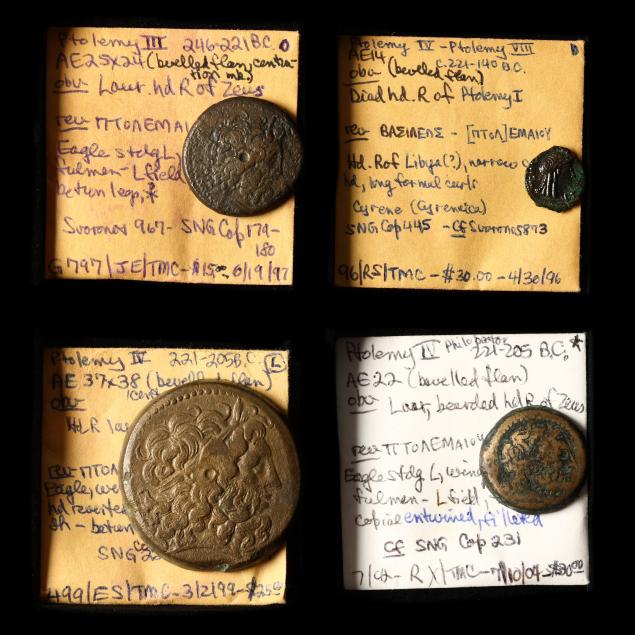 Ptolemy III 246-221 B.C.
AE25x24 (bevelled flan, centration mk)
obv Laur. hd R of Zeus
rev ΠΤΟΛΕΜΑΙ
Eagle stdg L,
fulmen - L field
betwn legs,
Svoronos 967 - SNG Cop 179-180
G797/JE/TMC - $15.00 6/19/97
Ptolemy IV - Ptolemy VIII
AE14 c.221-140 B.C.
obv (bevelled flan)
Diad hd. R of Ptolemy I
rev ΒΑΣΙΛΕΩΣ - [ΠΤΟΛ]ΕΜΑΙΟΥ
Hd. R of Libya(?), narrow
hd, long formal curls
Cyrene (Cyrenaica)
SNG Cop 445 - cf Svoronos 873
96/RS/TMC - $30.00 - 4/30/96
Ptolemy IV 221-205 B.C. L
AE 37x38 (bevelled flan)
obv
Hd R
rev ΠΤΟΛ
Eagle,
hd reverted
betwn
SNG
499/ES/TMC - 3/2/99 - $25.00
Ptolemy IV Philopator 221-205 B.C. *
AE22 (bevelled flan)
obv Laur, bearded hd R of Zeus
rev ΠΤΟΛΕΜΑΙΟΥ
Eagle stdg L,
fulmen - L field,
entwined, filleted
cf SNG Cop 231
TMC - 7/10/04 - $20.00